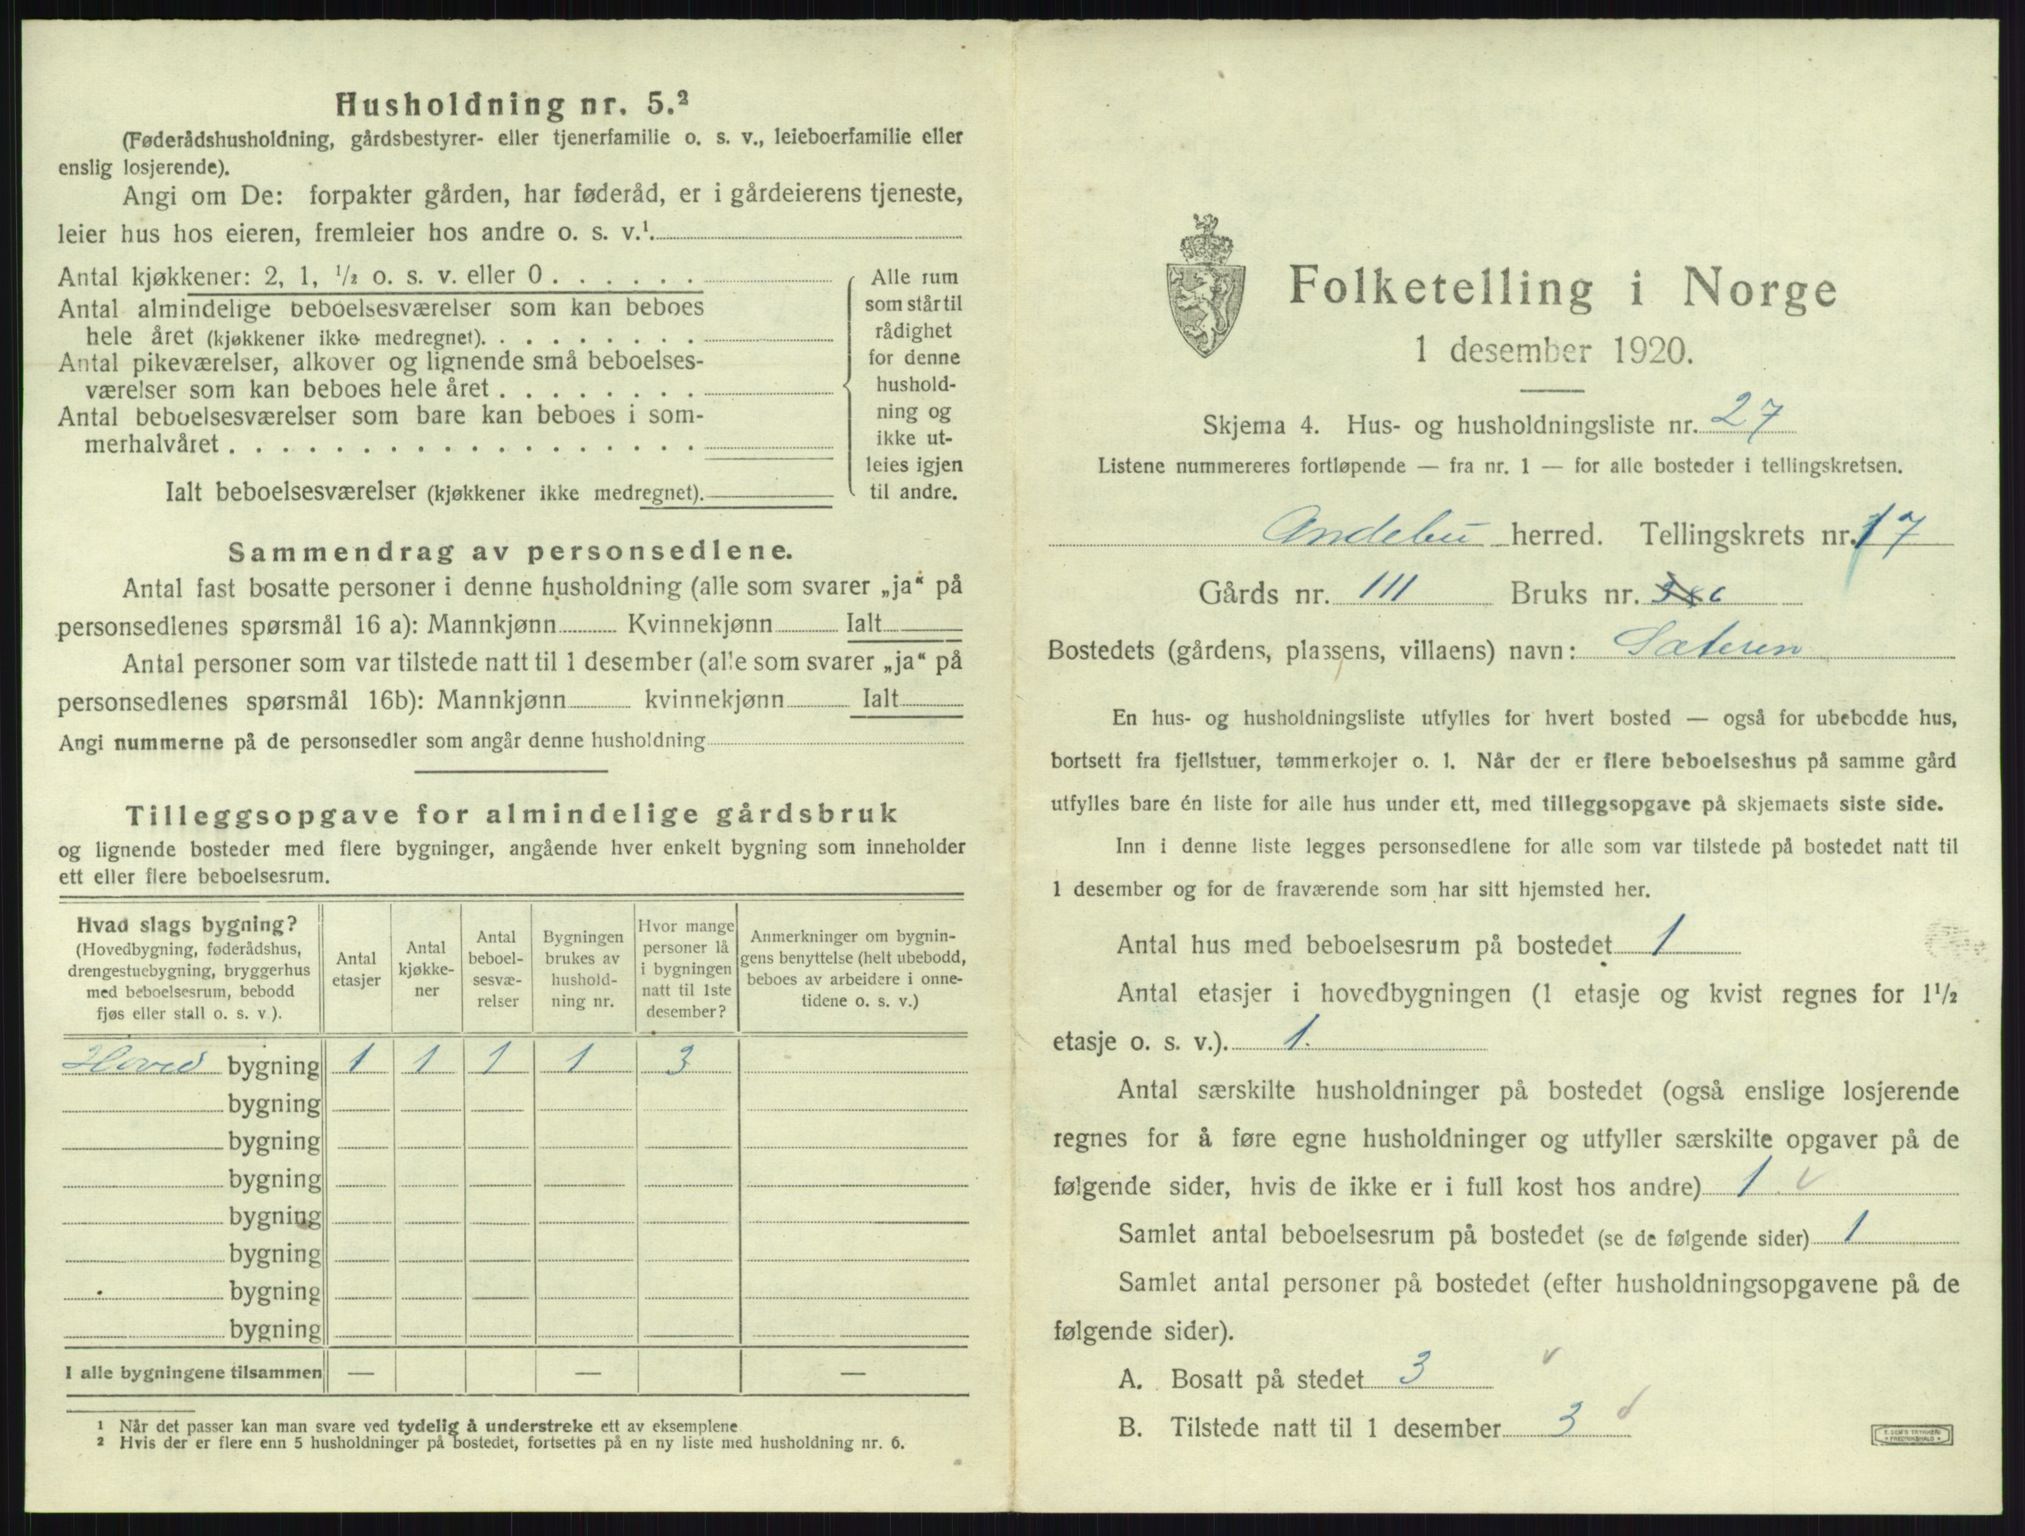 Husholdning nr. 5.²
(Føderådshusholdning, gårdsbestyrer- eller tjenerfamilie o. s. v., leieboerfamilie eller
enslig losjerende).
Angi om De: forpakter gården, har føderåd, er i gårdeierens tjeneste,
leier hus hos eieren, fremleier hos andre o. s. v.¹
Antal kjøkkener: 2, 1, ¹/₂ o. s. v. eller 0
Antal almindelige beboelsesværelser som kan beboes
hele året (kjøkkener ikke medregnet)
Antal pikeværelser, alkover og lignende små beboelses-
værelser som kan beboes hele året
Antal beboelsesværelser som bare kan beboes i som-
merhalvåret
Ialt beboelsesværelser (kjøkkener ikke medregnet)
Alle rum
som står til
rådighet
for denne
hushold-
ning og
ikke ut-
leies igjen
til andre.
Sammendrag av personsedlene.
Antal fast bosatte personer i denne husholdning (alle som svarer „ja“ på
personsedlenes spørsmål 16 a): Mannkjønn Kvinnekjønn Ialt
Antal personer som var tilstede natt til 1 desember (alle som svarer „ja“ på
personsedlenes spørsmål 16b): Mannkjønn kvinnekjønn Ialt
Angi nummerne på de personsedler som angår denne husholdning
Tilleggsopgave for almindelige gårdsbruk
og lignende bosteder med flere bygninger, angående hver enkelt bygning som inneholder
ett eller flere beboelsesrum.
Hvad slags bygning?
(Hovedbygning, føderådshus,
drengestuebygning, bryggerhus
med beboelsesrum, bebodd
fjøs eller stall o. s. v.).
Antal
etasjer
Antal
kjøkke-
ner
Antal
beboel-
sesvæ-
relser
Bygningen
brukes av
hushold-
ning nr.
Hvor mange
personer lå
i bygningen
natt til 1ste
desember?
Anmerkninger om bygnin-
gens benyttelse (helt ubebodd,
beboes av arbeidere i onne-
tidene o. s. v.)
Hoved bygning 1 1 1 1 3
bygning
bygning
bygning
bygning
bygning
bygning
bygning
I alle bygningene tilsammen — — —
¹ Når det passer kan man svare ved tydelig å understreke ett av eksemplene
² Hvis der er flere enn 5 husholdninger på bostedet, fortsettes på en ny liste med husholdning nr. 6.
Folketelling i Norge
1 desember 1920.
Skjema 4. Hus- og husholdningsliste nr. 27
Listene nummereres fortløpende — fra nr. 1 — for alle bosteder i tellingskretsen.
Andebu herred. Tellingskrets nr. 17
Gårds nr. 111 Bruks nr. 6
Bostedets (gårdens, plassens, villaens) navn: Sæteren
En hus- og husholdningsliste utfylles for hvert bosted — også for ubebodde hus,
bortsett fra fjellstuer, tømmerkojer o. l. Når der er flere beboelseshus på samme gård
utfylles bare én liste for alle hus under ett, med tilleggsopgave på skjemaets siste side.
Inn i denne liste legges personsedlene for alle som var tilstede på bostedet natt til
1 desember og for de fraværende som har sitt hjemsted her.
Antal hus med beboelsesrum på bostedet 1
Antal etasjer i hovedbygningen (1 etasje og kvist regnes for 1¹/₂
etasje o. s. v.). 1.
Antal særskilte husholdninger på bostedet (også enslige losjerende
regnes for å føre egne husholdninger og utfyller særskilte opgaver på de
følgende sider, hvis de ikke er i full kost hos andre) 1
Samlet antal beboelsesrum på bostedet (se de følgende sider) 1
Samlet antal personer på bostedet (efter husholdningsopgavene på de
følgende sider).
A. Bosatt på stedet 3
B. Tilstede natt til 1 desember 3